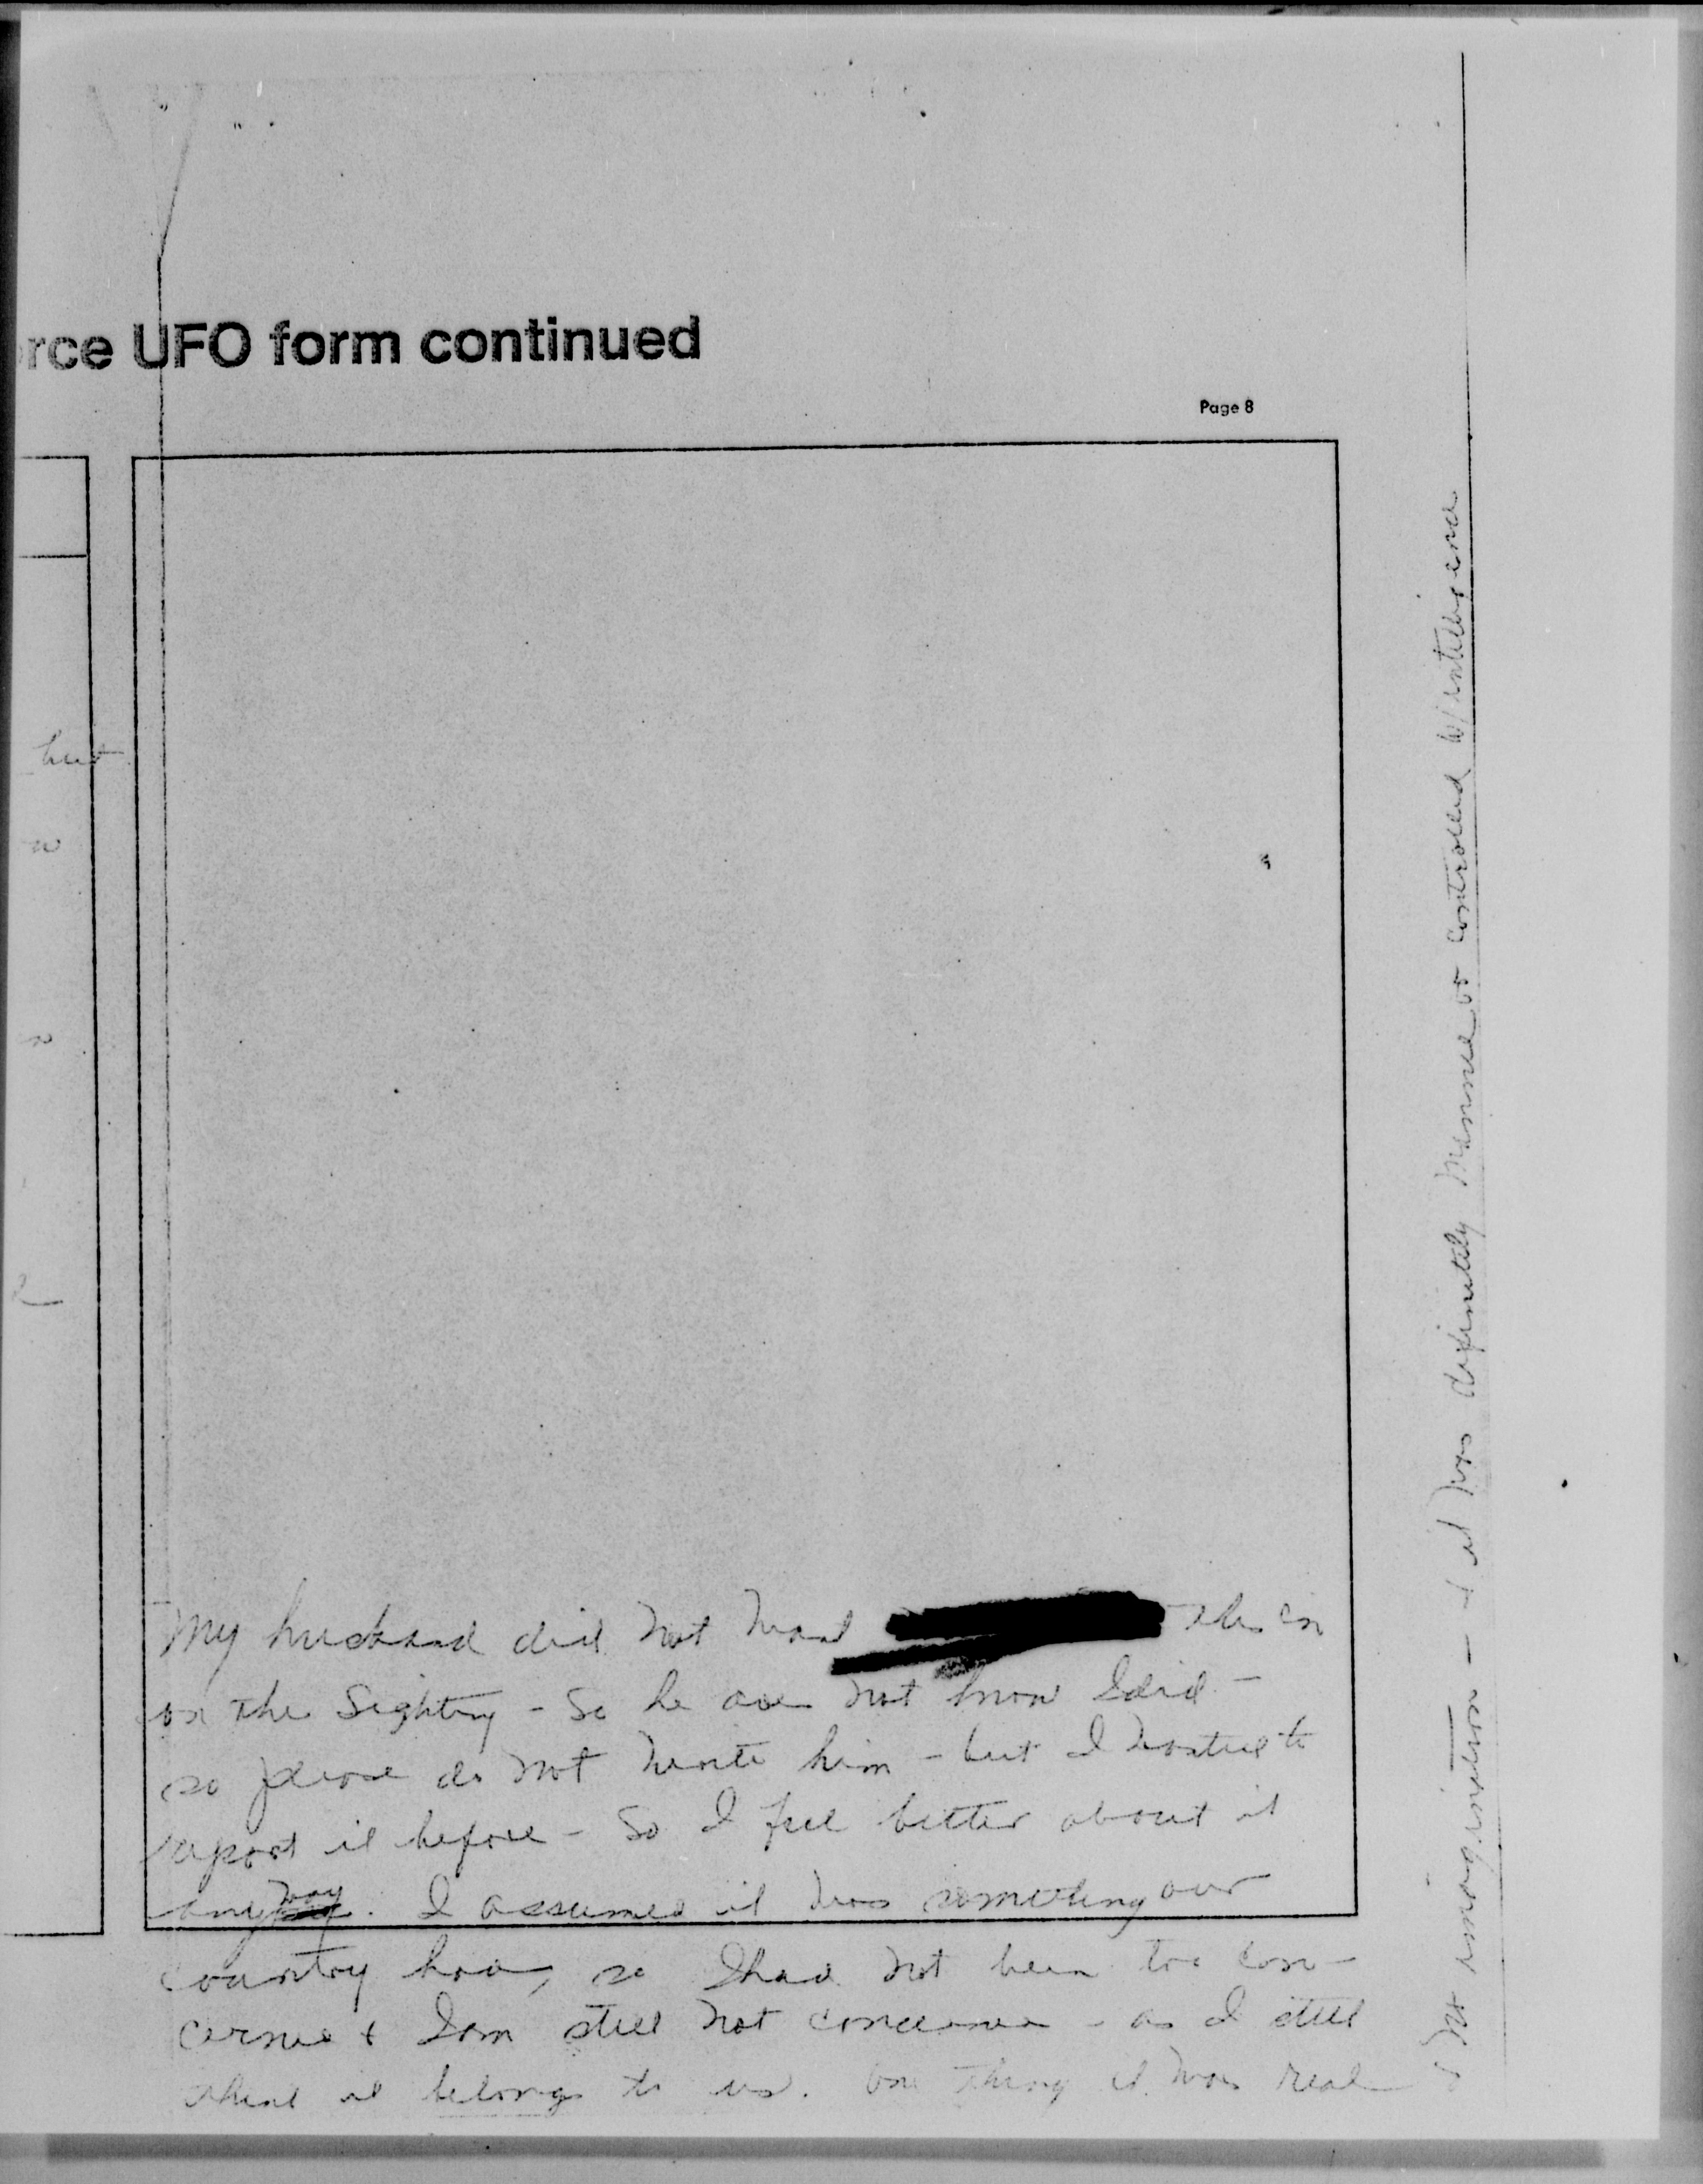 rce UFO form continued
Page 8
but
My husband did not want this in
on the Sighting - So he does not know I did -
so please do not write him - but I wanted to
report it before - So I feel better about it
any way. I assumed it was something our
country had, so I had not been too con-
cerned & I am still not concerned - as I still
think it belongs to us. One thing it was real
& not imagination - & it was definitely manned or controlled w/ intelligence